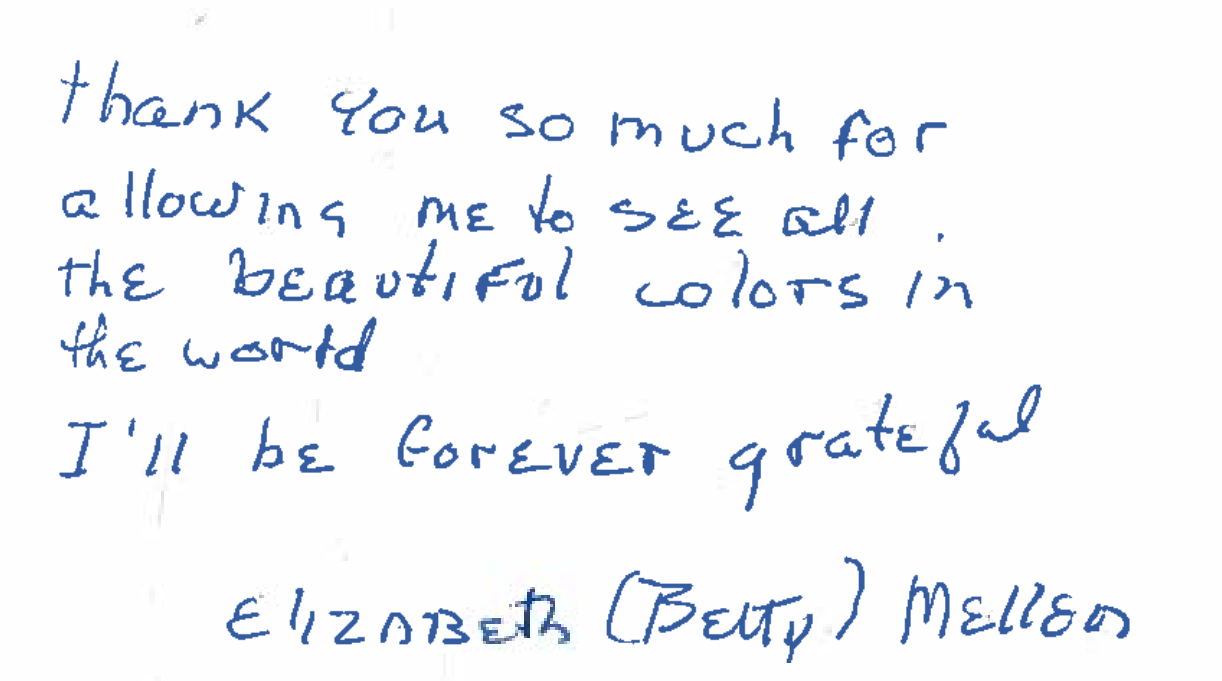 thank you so much for
allowing me to see all
the beautiful colors in
the world
I'll be forever grateful
Elizabeth (Betty) Mellen